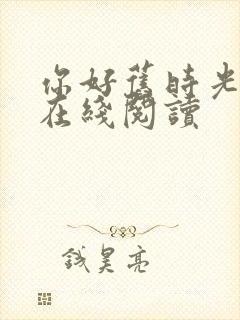 你好舊時光
在綫閱讀
钱昊亮